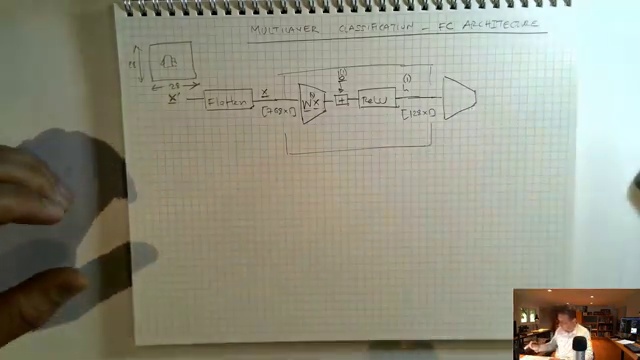 MULTILAYER CLASSIFICATION - FC ARCHITECTURE
28
28
x'
Flatten
x
[768x1]
W x
+
ReLU
(1)
[128x1]